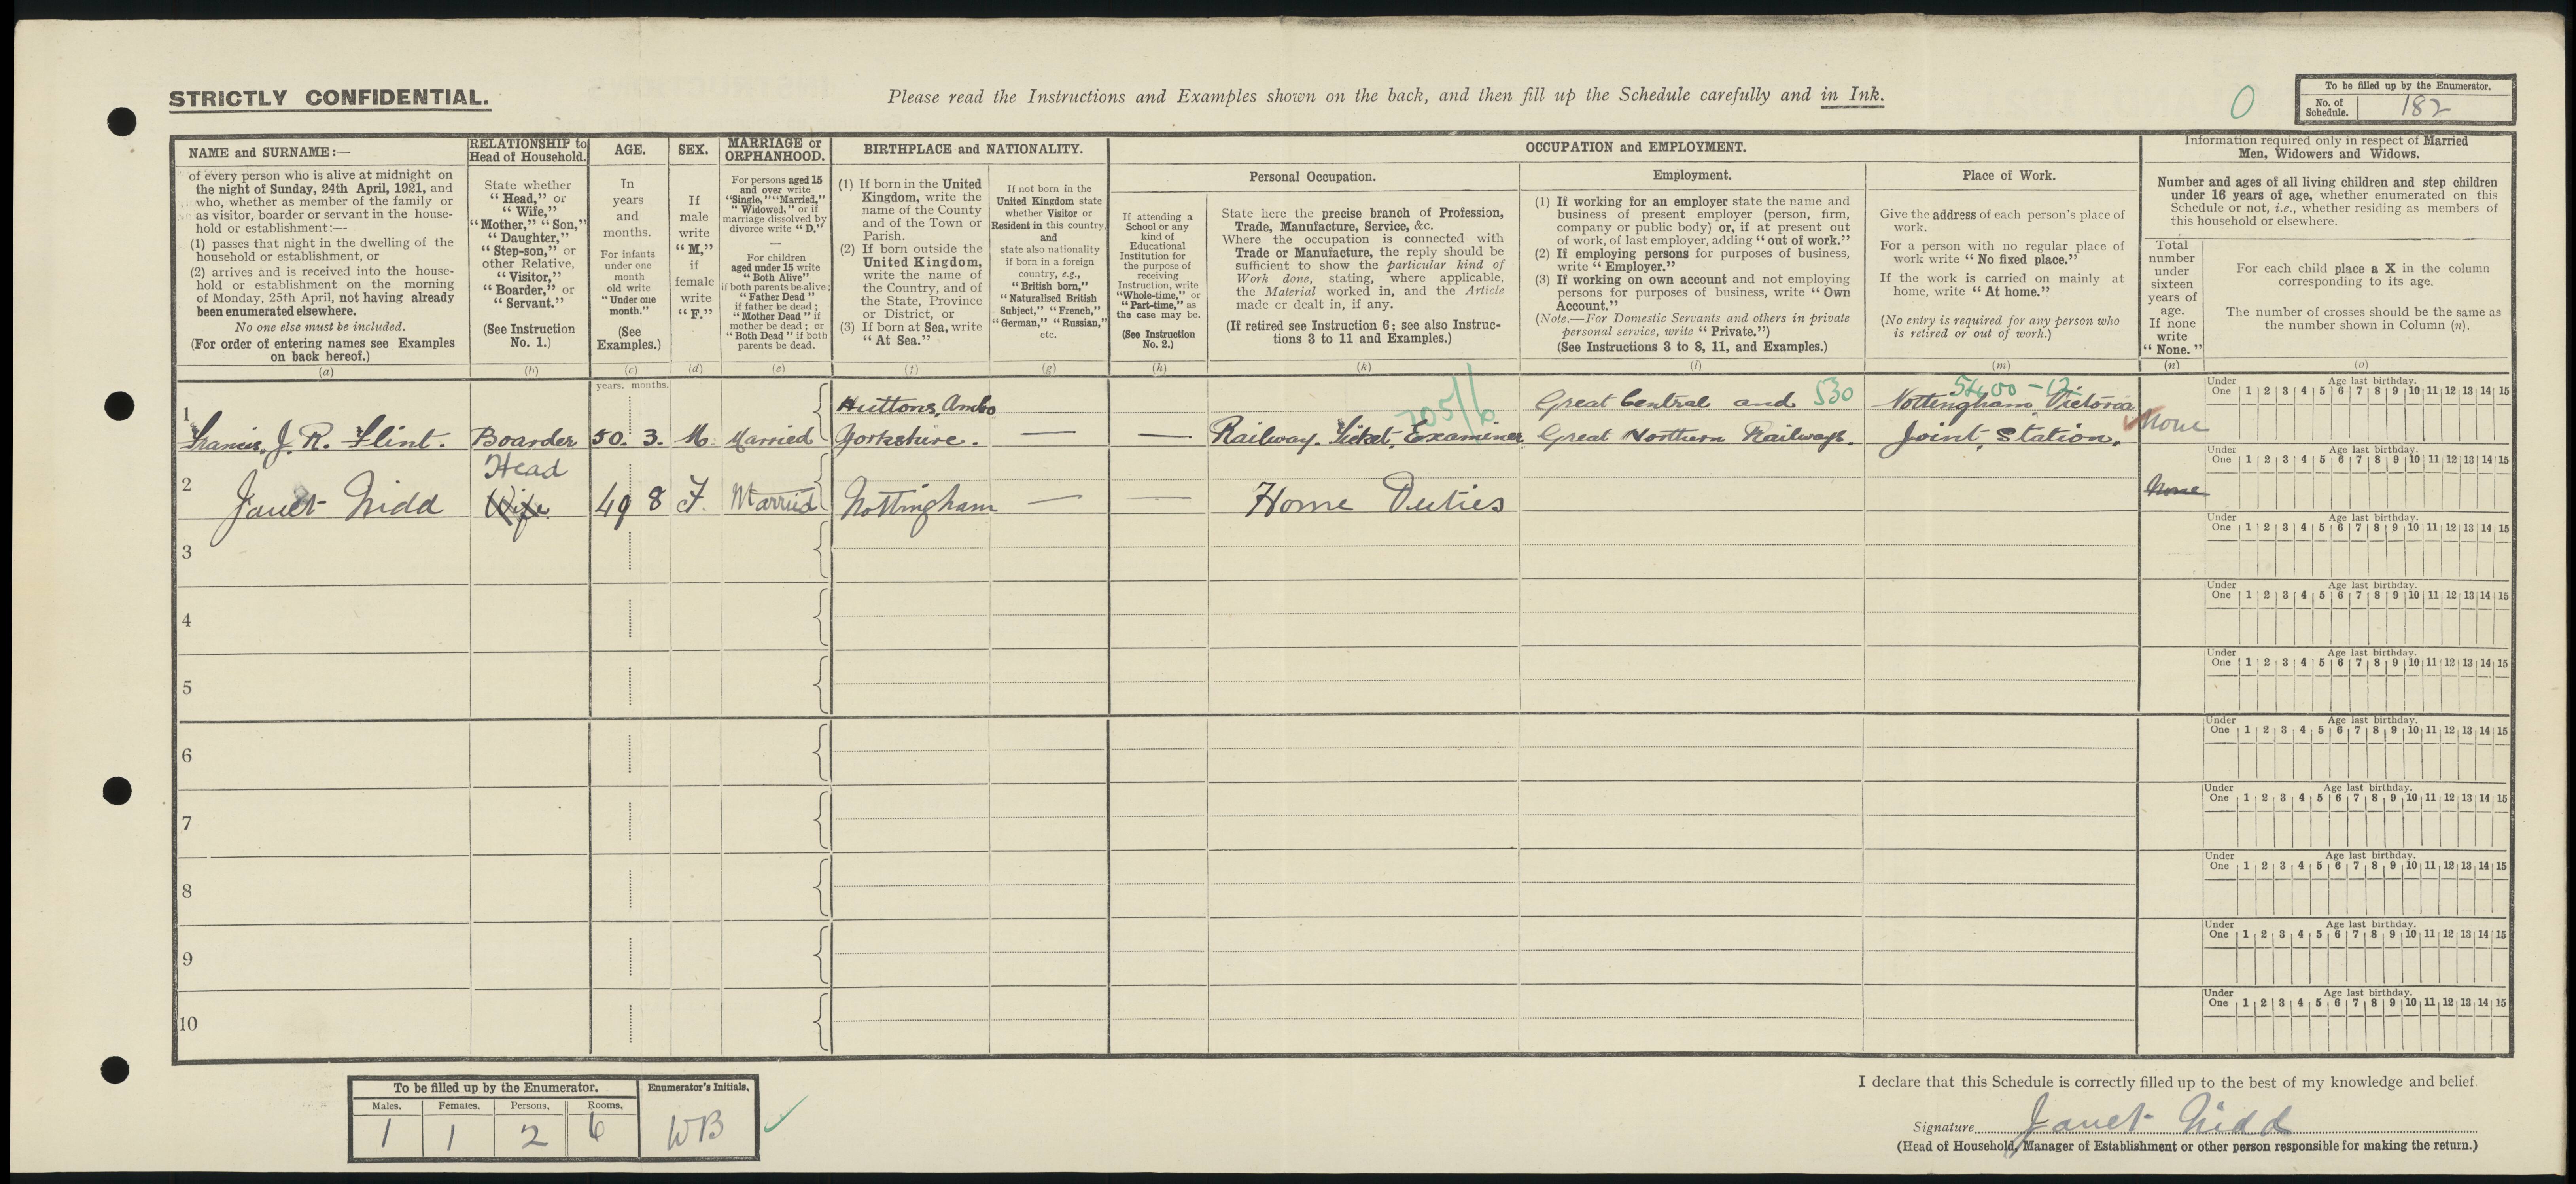 STRICTLY CONFIDENTIAL.
Please read the Instructions and Examples shown on the back, and then fill up the Schedule carefully and in Ink.
0
To be filled up by the Enumerator.
No. of Schedule. 182
NAME and SURNAME:—
of every person who is alive at midnight on
the night of Sunday, 24th April, 1921, and
who, whether as member of the family or
as visitor, boarder or servant in the house-
hold or establishment:—
(1) passes that night in the dwelling of the
household or establishment, or
(2) arrives and is received into the house-
hold or establishment on the morning
of Monday, 25th April, not having already
been enumerated elsewhere.
No one else must be included.
(For order of entering names see Examples
on back hereof.)
(a)
RELATIONSHIP to
Head of Household.
State whether
"Head," or
"Wife,"
"Mother," "Son,"
"Daughter,"
"Step-son," or
other Relative,
"Visitor,"
"Boarder," or
"Servant."
(See Instruction
No. 1.)
(b)
AGE.
In
years
and
months.
For infants
under one
month
old write
"Under one
month."
(See
Examples.)
(c)
SEX.
If
male
write
"M,"
if
female
write
"F."
(d)
MARRIAGE or
ORPHANHOOD.
For persons aged 15
and over write
"Single," "Married,"
"Widowed," or if
marriage dissolved by
divorce write "D."
—
For children
aged under 15 write
"Both Alive"
if both parents be alive;
"Father Dead"
if father be dead;
"Mother Dead" if
mother be dead; or
"Both Dead" if both
parents be dead.
(e)
BIRTHPLACE and NATIONALITY.
(1) If born in the United
Kingdom, write the
name of the County
and of the Town or
Parish.
(2) If born outside the
United Kingdom,
write the name of
the Country, and of
the State, Province
or District, or
(3) If born at Sea, write
"At Sea."
(f)
If not born in the
United Kingdom state
whether Visitor or
Resident in this country,
and
state also nationality
if born in a foreign
country, e.g.,
"British born,"
"Naturalised British
Subject," "French,"
"German," "Russian,"
etc.
(g)
OCCUPATION and EMPLOYMENT.
If attending a
School or any
kind of
Educational
Institution for
the purpose of
receiving
Instruction, write
"Whole-time," or
"Part-time," as
the case may be.
(See Instruction
No. 2.)
(h)
Personal Occupation.
State here the precise branch of Profession,
Trade, Manufacture, Service, &c.
Where the occupation is connected with
Trade or Manufacture, the reply should be
sufficient to show the particular kind of
Work done, stating, where applicable,
the Material worked in, and the Article
made or dealt in, if any.
(If retired see Instruction 6; see also Instruc-
tions 3 to 11 and Examples.)
(k)
Employment.
(1) If working for an employer state the name and
business of present employer (person, firm,
company or public body) or, if at present out
of work, of last employer, adding "out of work."
(2) If employing persons for purposes of business,
write "Employer."
(3) If working on own account and not employing
persons for purposes of business, write "Own
Account."
(Note.—For Domestic Servants and others in private
personal service, write "Private.")
(See Instructions 3 to 8, 11, and Examples.)
(l)
Place of Work.
Give the address of each person's place of
work.
For a person with no regular place of
work write "No fixed place."
If the work is carried on mainly at
home, write "At home."
(No entry is required for any person who
is retired or out of work.)
(m)
Information required only in respect of Married
Men, Widowers and Widows.
Number and ages of all living children and step children
under 16 years of age, whether enumerated on this
Schedule or not, i.e., whether residing as members of
this household or elsewhere.
Total
number
under
sixteen
years of
age.
If none
write
"None."
(n)
For each child place a X in the column
corresponding to its age.
The number of crosses should be the same as
the number shown in Column (n).
(o)
years. months.
1
Francis, J. R. Flint. Boarder 50. 3. M. Married Huttons, Ambo Yorkshire. — — Railway. Ticket, Examiner 705/6 Great Central and 530 Great Northern Railways. 5400-12 Nottingham, Victoria Joint, Station. None
Under One Age last birthday. 1 2 3 4 5 6 7 8 9 10 11 12 13 14 15
2
Janet Nidd Head Wife 49 8 F. Married Nottingham — — Home Duties None
Under One Age last birthday. 1 2 3 4 5 6 7 8 9 10 11 12 13 14 15
3
Under One Age last birthday. 1 2 3 4 5 6 7 8 9 10 11 12 13 14 15
4
Under One Age last birthday. 1 2 3 4 5 6 7 8 9 10 11 12 13 14 15
5
Under One Age last birthday. 1 2 3 4 5 6 7 8 9 10 11 12 13 14 15
6
Under One Age last birthday. 1 2 3 4 5 6 7 8 9 10 11 12 13 14 15
7
Under One Age last birthday. 1 2 3 4 5 6 7 8 9 10 11 12 13 14 15
8
Under One Age last birthday. 1 2 3 4 5 6 7 8 9 10 11 12 13 14 15
9
Under One Age last birthday. 1 2 3 4 5 6 7 8 9 10 11 12 13 14 15
10
Under One Age last birthday. 1 2 3 4 5 6 7 8 9 10 11 12 13 14 15
To be filled up by the Enumerator.
Males. Females. Persons. Rooms.
1 1 2 6
Enumerator's Initials.
WB
I declare that this Schedule is correctly filled up to the best of my knowledge and belief.
Signature Janet Nidd
(Head of Household, Manager of Establishment or other person responsible for making the return.)